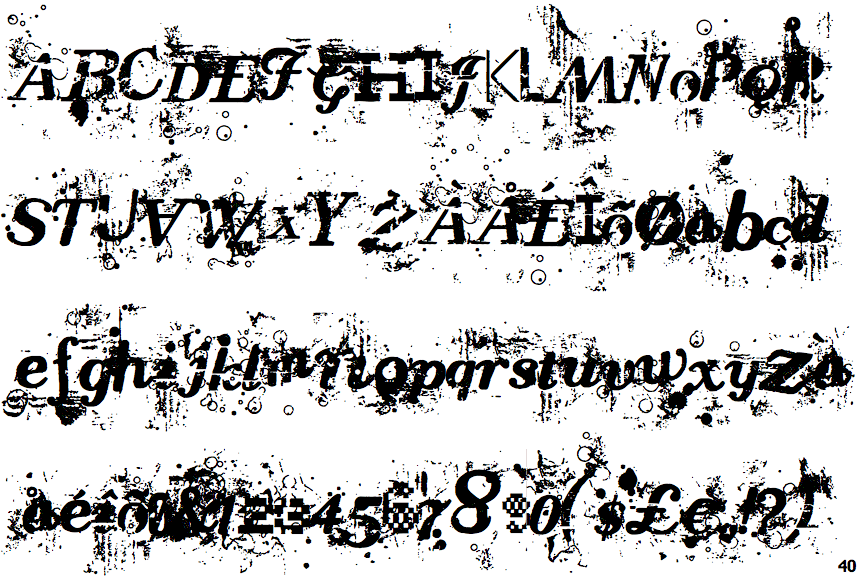 ABCDEFGHIJKLMNoPQR
STUVWxYZÀÅÉÎõØabcd
efghijklmnopqrstuvwxyzà
åéîõø&1234567890($£€.!?)
40